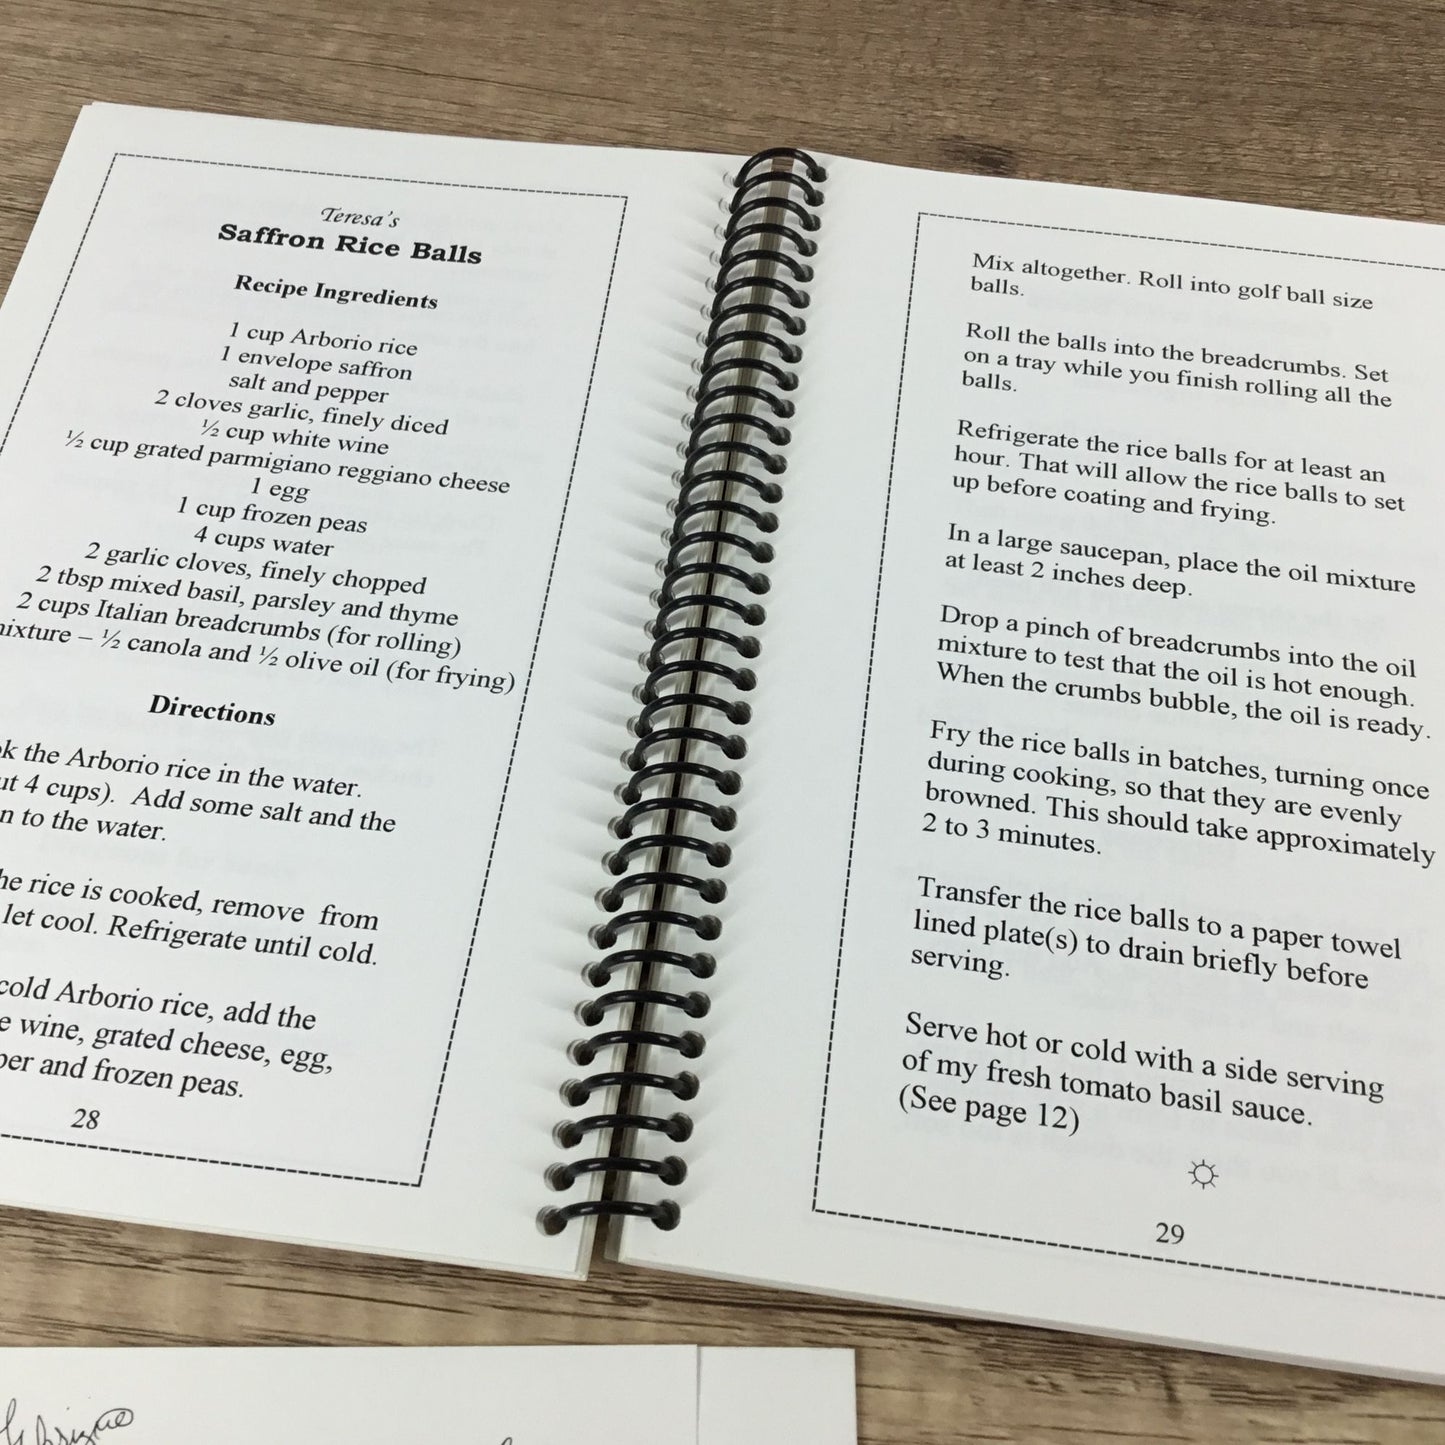 Teresa's
Saffron Rice Balls
Recipe Ingredients
1 cup Arborio rice
1 envelope saffron
salt and pepper
2 cloves garlic, finely diced
½ cup white wine
½ cup grated parmigiano reggiano cheese
1 egg
1 cup frozen peas
4 cups water
2 garlic cloves, finely chopped
2 tbsp mixed basil, parsley and thyme
2 cups Italian breadcrumbs (for rolling)
– ½ canola and ½ olive oil (for frying)
Directions
the Arborio rice in the water.
4 cups). Add some salt and the
to the water.
rice is cooked, remove from
let cool. Refrigerate until cold.
cold Arborio rice, add the
wine, grated cheese, egg,
and frozen peas.
28
Mix altogether. Roll into golf ball size
balls.
Roll the balls into the breadcrumbs. Set
on a tray while you finish rolling all the
balls.
Refrigerate the rice balls for at least an
hour. That will allow the rice balls to set
up before coating and frying.
In a large saucepan, place the oil mixture
at least 2 inches deep.
Drop a pinch of breadcrumbs into the oil
mixture to test that the oil is hot enough.
When the crumbs bubble, the oil is ready.
Fry the rice balls in batches, turning once
during cooking, so that they are evenly
browned. This should take approximately
2 to 3 minutes.
Transfer the rice balls to a paper towel
lined plate(s) to drain briefly before
serving.
Serve hot or cold with a side serving
of my fresh tomato basil sauce.
(See page 12)
29